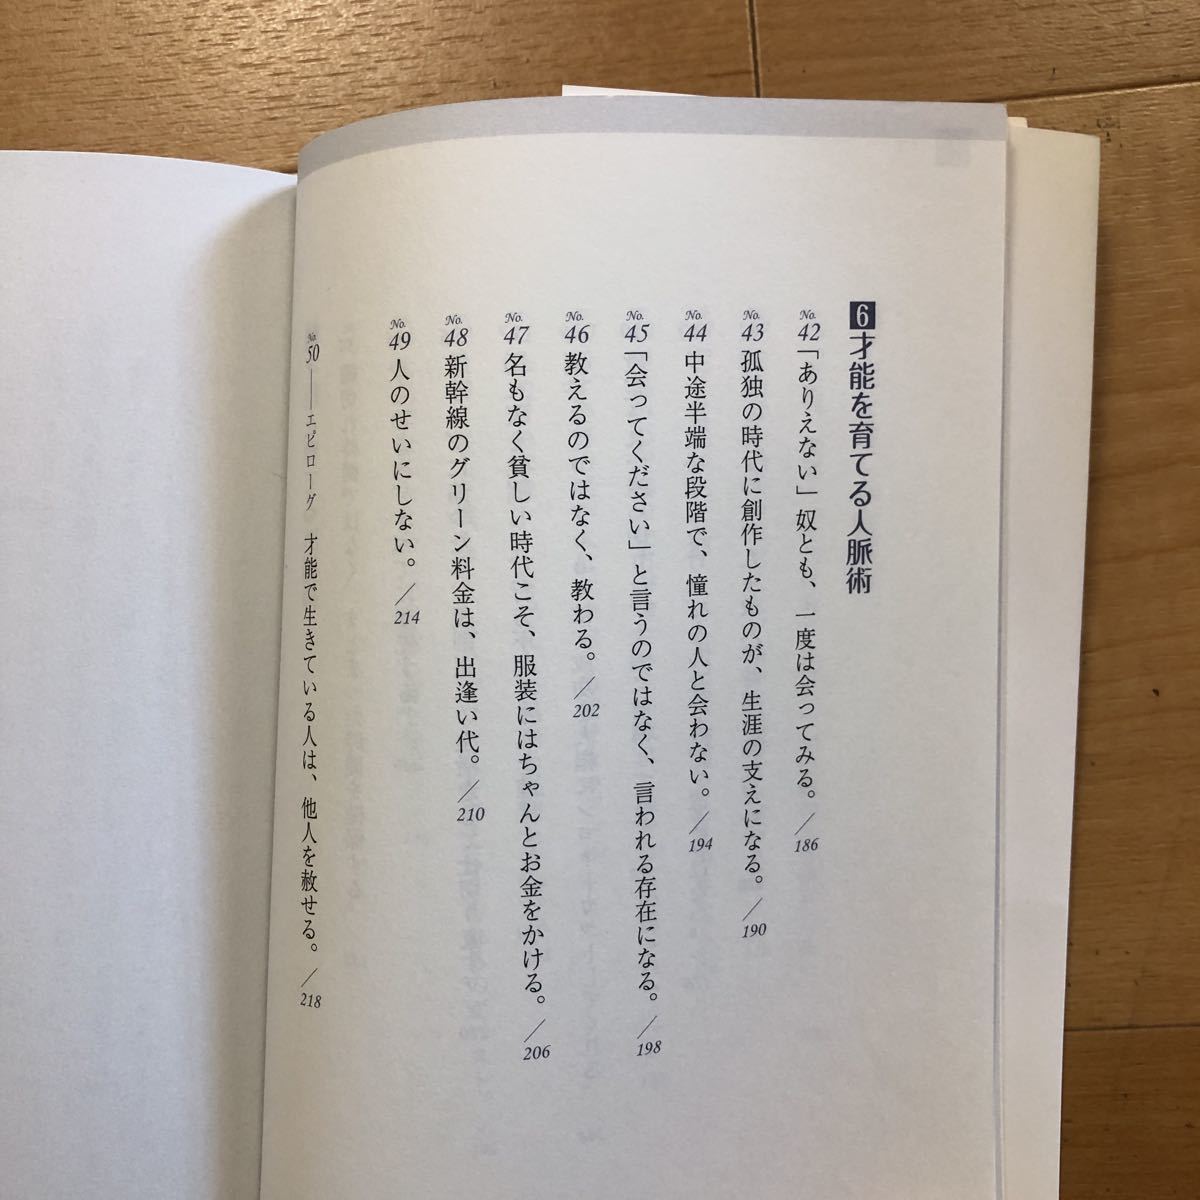 6 才能を育てる人脈術
No. 42 「ありえない」奴とも、一度は会ってみる。／186
No. 43 孤独の時代に創作したものが、生涯の支えになる。／190
No. 44 中途半端な段階で、憧れの人と会わない。／194
No. 45 「会ってください」と言うのではなく、言われる存在になる。／198
No. 46 教えるのではなく、教わる。／202
No. 47 名もなく貧しい時代こそ、服装にはちゃんとお金をかける。／206
No. 48 新幹線のグリーン料金は、出逢い代。／210
No. 49 人のせいにしない。／214
No. 50 ──エピローグ 才能で生きている人は、他人を赦せる。／218